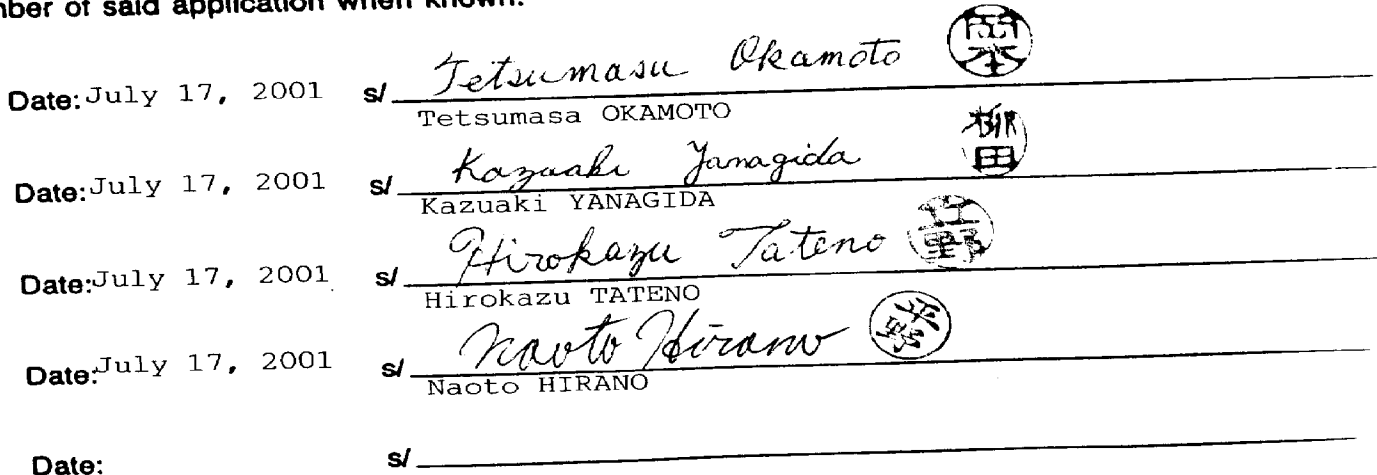 nber of said application when known.
Date: July 17, 2001 s/ Tetsumasa Okamoto 岡本
Tetsumasa OKAMOTO
Date: July 17, 2001 s/ Kazuaki Yanagida 柳田
Kazuaki YANAGIDA
Date: July 17, 2001 s/ Hirokazu Tateno 舘野
Hirokazu TATENO
Date: July 17, 2001 s/ Naoto Hirano 平野
Naoto HIRANO
Date: s/